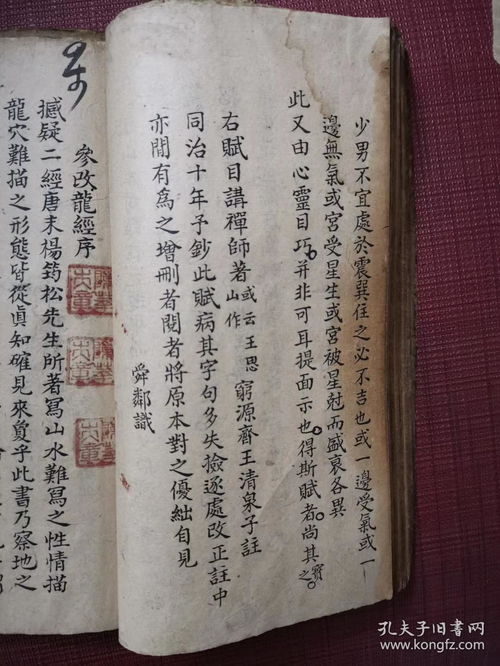 少男不宜處於震巽住之必不吉也或一邊受氣或一
邊無氣或宮受星生或宮被星尅而盛衰各異
此又由心靈目巧並非可耳提面示也得斯賦者尚其寶之
右賦目講禪師著或云王思山作窮源齋王清泉子註
同治十年予鈔此賦病其字句多失撿逐處改正註中
亦間有為之增刪者閱者將原本對之優絀自見
舜鄰識
參改龍經序
撼疑二經唐末楊筠松先生所著寫山水難寫之性情描
龍穴難描之形態皆從真知確見來夐乎此書乃察地之
孔夫子旧书网
www.kongfz.com